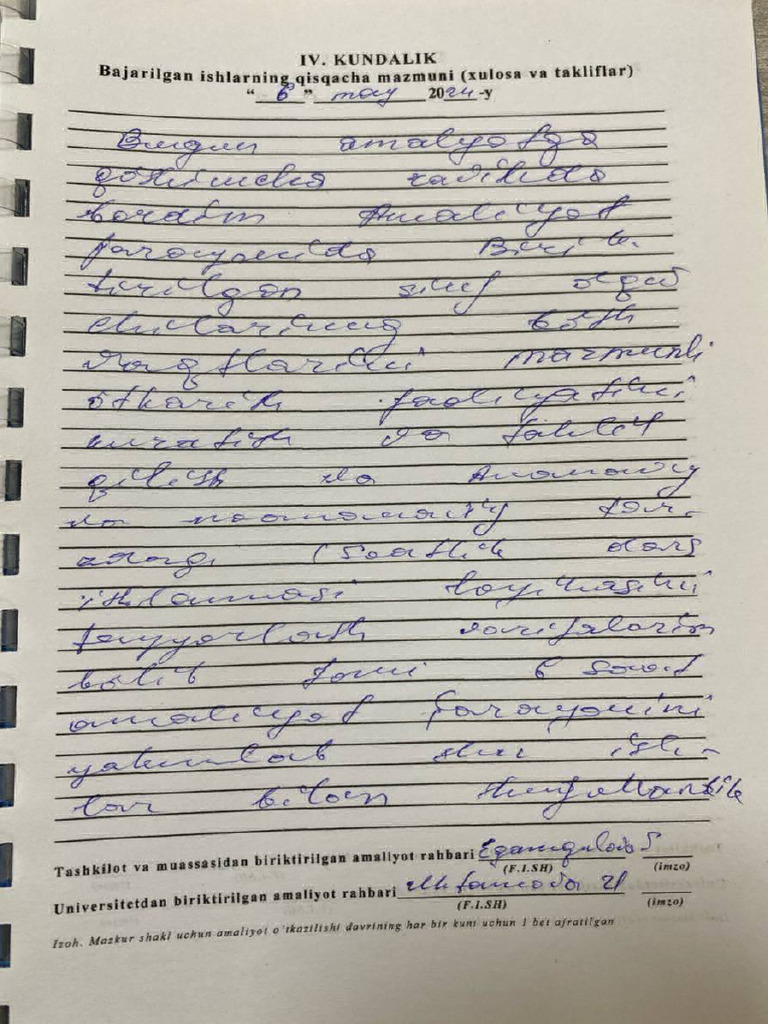 IV. KUNDALIK
Bajarilgan ishlarning qisqacha mazmuni (xulosa va takliflar)
“ 6 ” may 2024-y
Bugun amalyotga
qo'shimcha ravishda
bordim Amaliyot
jarayonida Birik-
tirilgan sinf o'quv
chilarining bo'sh
vaqtlarini mazmunli
o'tkarish faoliyatini
kuzatish va tahlil
qilish va Ananaviy
va noananaviy tar-
zdagi 1 soatlik dars
ishlanmasi loyihasini
tayyorlash vazifalarim
bo'lib Jami 6 soat
amaliyot jarayonini
yakunlab shu ish-
lar bilan shug'ullandik
Tashkilot va muassasidan biriktirilgan amaliyot rahbari Egamqulova S
(F.I.SH) (imzo)
Universitetdan biriktirilgan amaliyot rahbari
(F.I.SH) (imzo)
Izoh. Mazkur shakl uchun amaliyot o'tkazilishi davrining har bir kuni uchun 1 bet ajratilgan